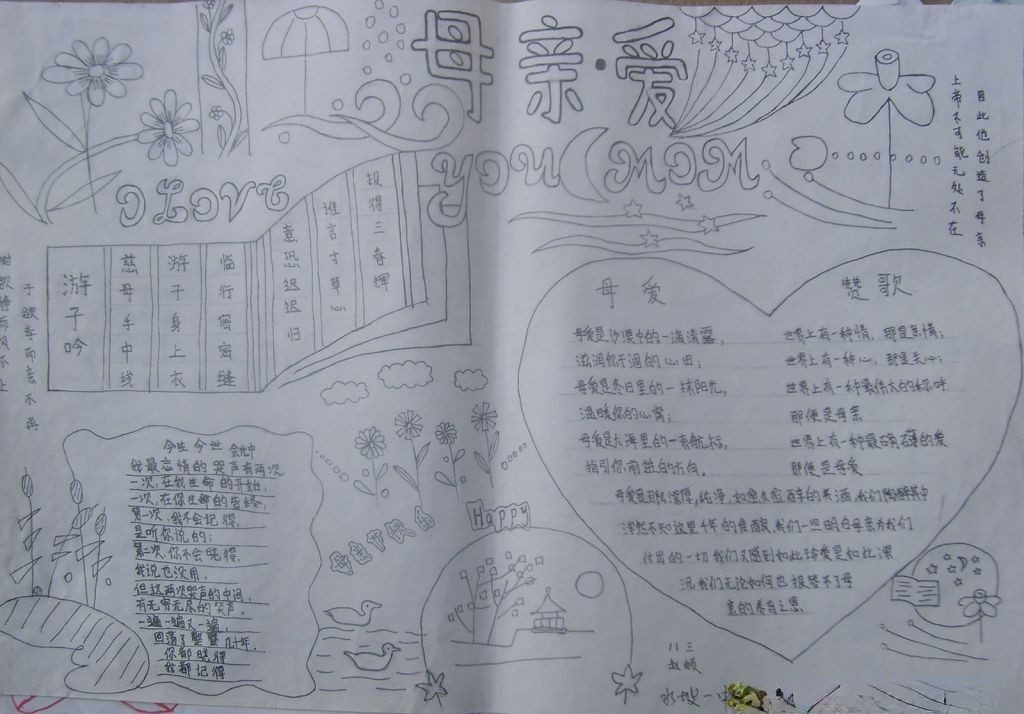 母亲·爱
I LOVE YOU MOM
目此他创造了母亲
上帝不可能无处不在
游子吟
慈母手中线
游子身上衣
临行密密缝
意恐迟迟归
谁言寸草心
报得三春晖
树欲静而风不止
子欲孝而亲不再
母爱 赞歌
母爱是沙漠中的一滴清露，
滋润你干涸的心田；
母爱是冬日里的一抹阳光，
温暖你的心窝；
母爱是大海里的一束航标，
指引你前进的方向。
世界上有一种情，那是亲情；
世界上有一种心，那是关心；
世界上有一种最伟大的称呼
那便是母亲
世界上有一种最
的爱
那便是母爱
母爱是那深厚，纯净，如愈久愈醇的美酒，我们陶醉其中
浑然不知这里千年的佳酿，我们一旦明白母亲为我们
付出的一切我们又感到如此珍爱是如此深
沉我们无论如何也报答不了母
亲的养育之恩
今生今世 余光中
我最忘情的哭声有两次
一次，在我生命的开始，
一次，在你生命的告终，
第一次，我不会记得，
是听你说的；
第二次，你不会晓得，
我说也没用，
但这两次哭声的中间，
有无穷无尽的笑声，
一遍一遍又一遍，
回荡了整整几十年，
你都晓得
我都记得
母亲节快乐
Happy
八三
水坡一中